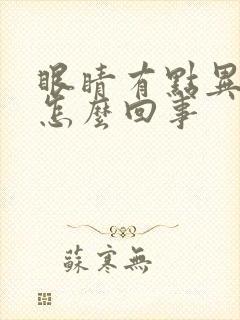 眼睛有點異
怎麼回事
蘇寒無